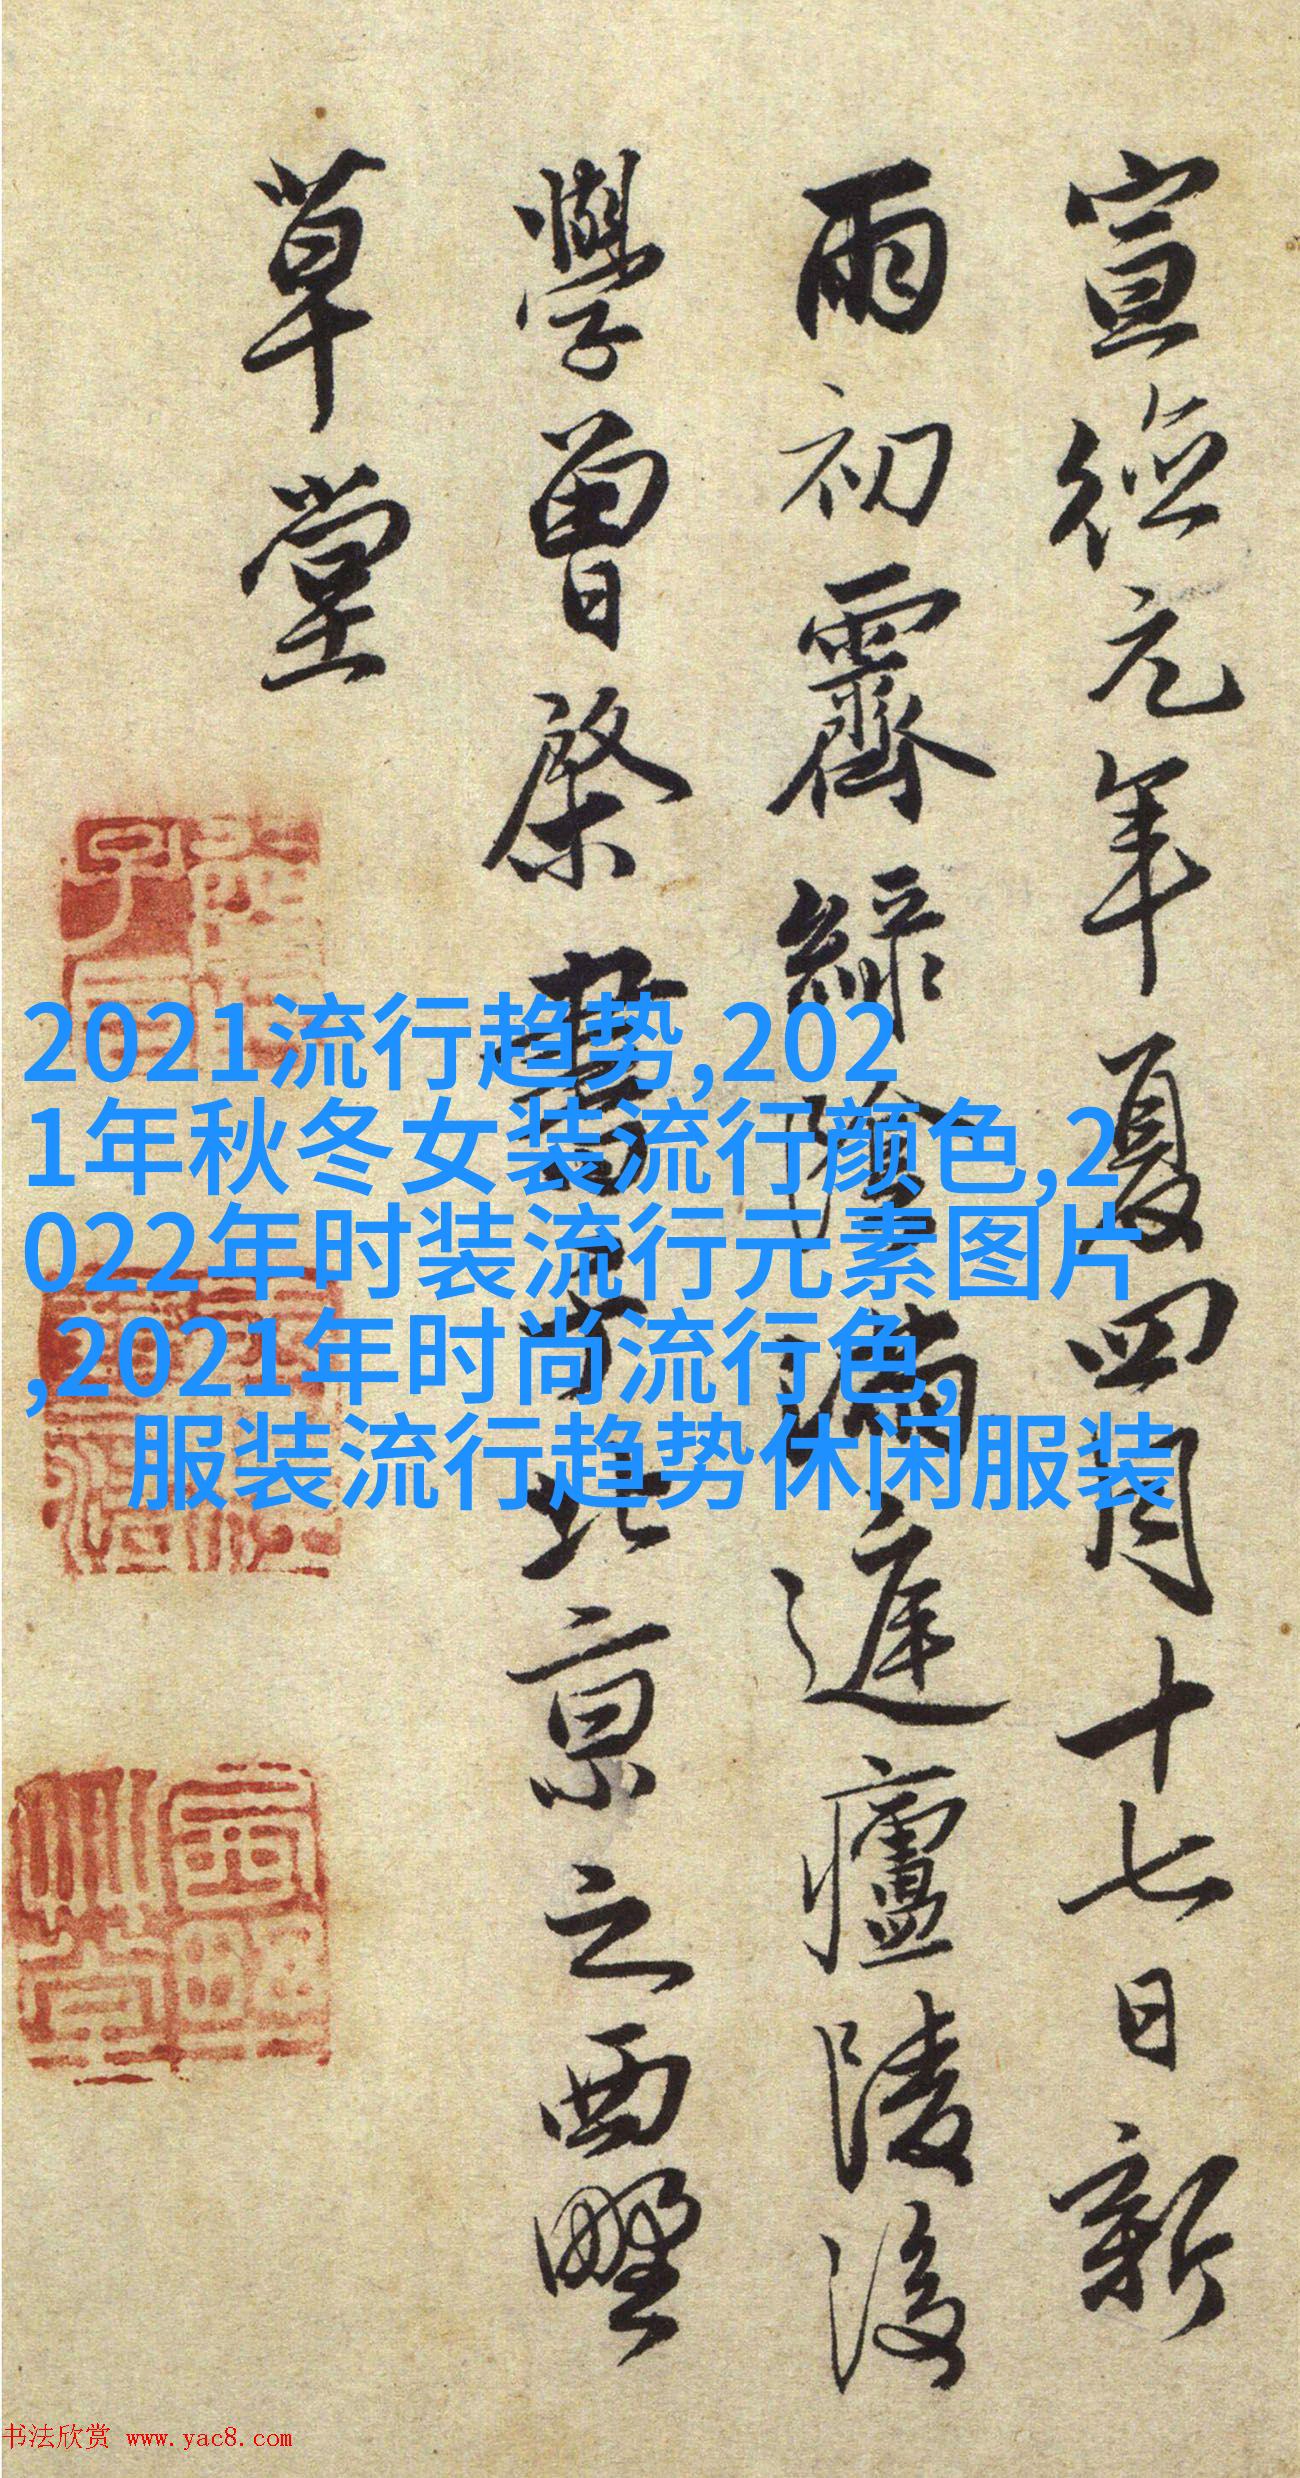 宣德元年夏四月十七日新
雨初霽綠陰滿庭廬陵後
學曾棨書于北京之西墅
草堂
2021流行趋势,202
1年秋冬女装流行颜色,2
022年时装流行元素图片
,2021年时尚流行色,
服装流行趋势休闲服装
书法欣赏 www.yac8.com